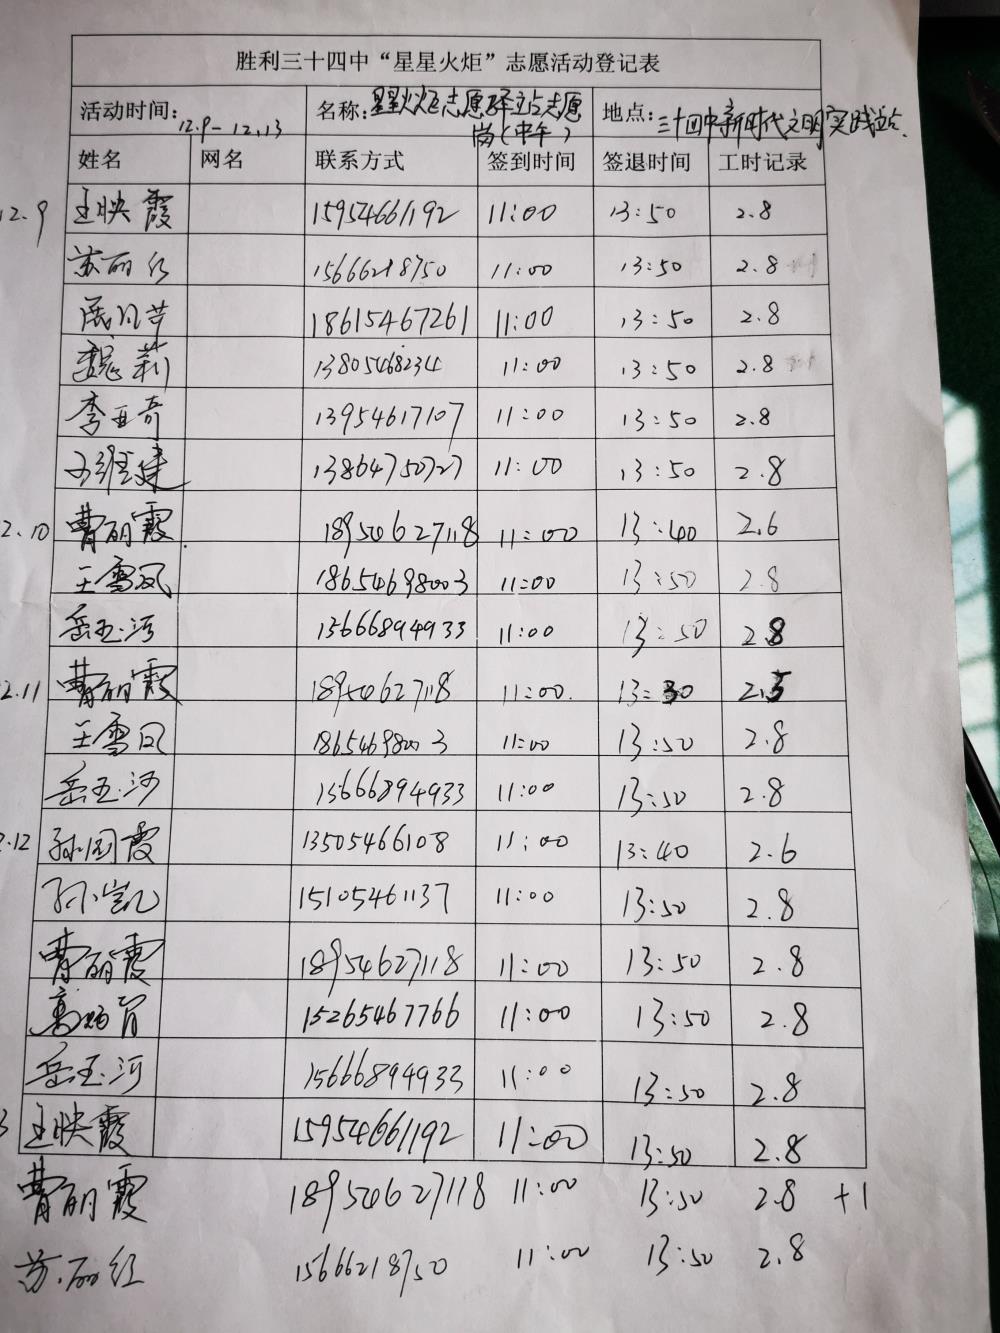 胜利三十四中“星星火炬”志愿活动登记表
活动时间: 12.9-12.13 名称: 星星火炬志愿驿站志愿岗(中午) 地点: 三十四中新时代文明实践站
姓名 网名 联系方式 签到时间 签退时间 工时记录
12.9 王映霞 15954661192 11:00 13:50 2.8
苏丽红 15666218750 11:00 13:50 2.8
18615467261 11:00 13:50 2.8
魏莉 13805468234 11:00 13:50 2.8
李亚奇 13954617107 11:00 13:50 2.8
13864750727 11:00 13:50 2.8
2.10 曹丽霞 18954627118 11:00 13:40 2.6
王雪凤 18654698003 11:00 13:50 2.8
岳玉河 15666894933 11:00 13:50 2.8
2.11 曹丽霞 18954627118 11:00 13:30 2.5
王雪凤 18654698003 11:00 13:50 2.8
岳玉河 15666894933 11:00 13:50 2.8
.12 孙国霞 13505466108 11:00 13:40 2.6
孙凯 15105461137 11:00 13:50 2.8
曹丽霞 18954627118 11:00 13:50 2.8
15265467766 11:00 13:50 2.8
岳玉河 15666894933 11:00 13:50 2.8
3 王映霞 15954661192 11:00 13:50 2.8
曹丽霞 18954627118 11:00 13:50 2.8 +1
苏丽红 15666218750 11:00 13:50 2.8